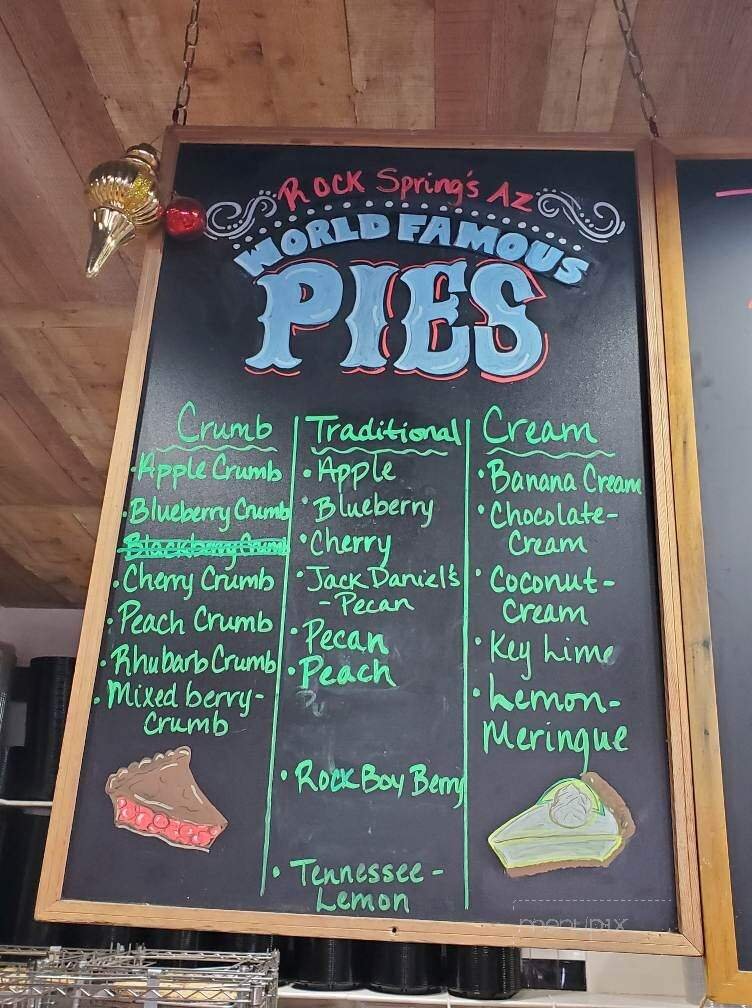 Rock Spring's Az
WORLD FAMOUS
PIES
Crumb
• Apple Crumb
• Blueberry Crumb
Blackberry Crumb
• Cherry Crumb
• Peach Crumb
• Rhubarb Crumb
• Mixed berry-
Crumb
Traditional
• Apple
• Blueberry
• Cherry
• Jack Daniel's
- Pecan
• Pecan
• Peach
Pu
• Rock Boy Berry
• Tennessee-
Lemon
Cream
• Banana Cream
• Chocolate-
Cream
• Coconut-
Cream
• Key Lime
• Lemon-
Meringue
menupix